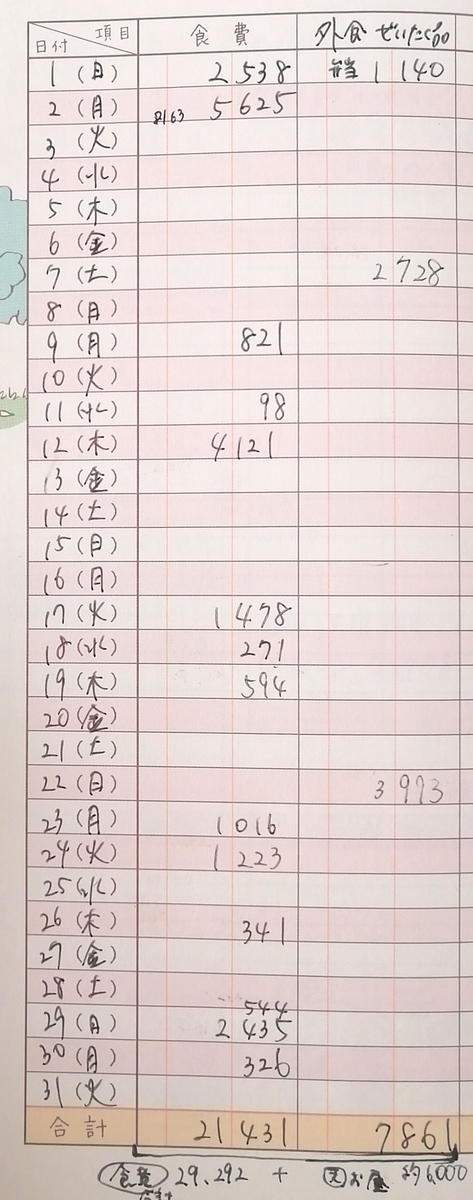 日付 項目 食費 外食 ぜいたく品
1 (日) 2 538 弁当 1 140
2 (月) 8163 5 625
3 (火)
4 (水)
5 (木)
6 (金)
7 (土) 2 728
8 (日)
9 (月) 821
10 (火)
11 (水) 98
12 (木) 4 121
13 (金)
14 (土)
15 (日)
16 (月)
17 (火) 1 478
18 (水) 271
19 (木) 594
20 (金)
21 (土)
22 (日) 3 993
23 (月) 1 016
24 (火) 1 223
25 (水)
26 (木) 341
27 (金)
28 (土)
544
29 (日) 2 435
30 (月) 326
31 (火)
合計 21 431 7861
食費 29,292 + お 約6,000